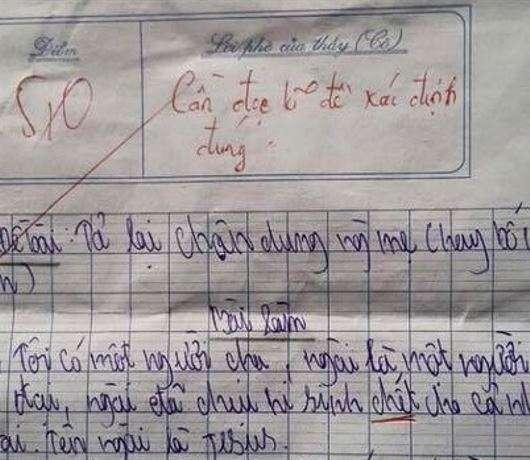 Điểm
Lời phê của thầy (Cô)
5,0
Cần đọc kĩ đề xác định
đúng.
Đề bài: Tả lại chân dung người mẹ (hay bố
Bài làm
Tôi có một người cha, ngài là một người
đại, ngài đã chịu hi sinh chết cho cả nh
ại. Tên ngài là Jesius.